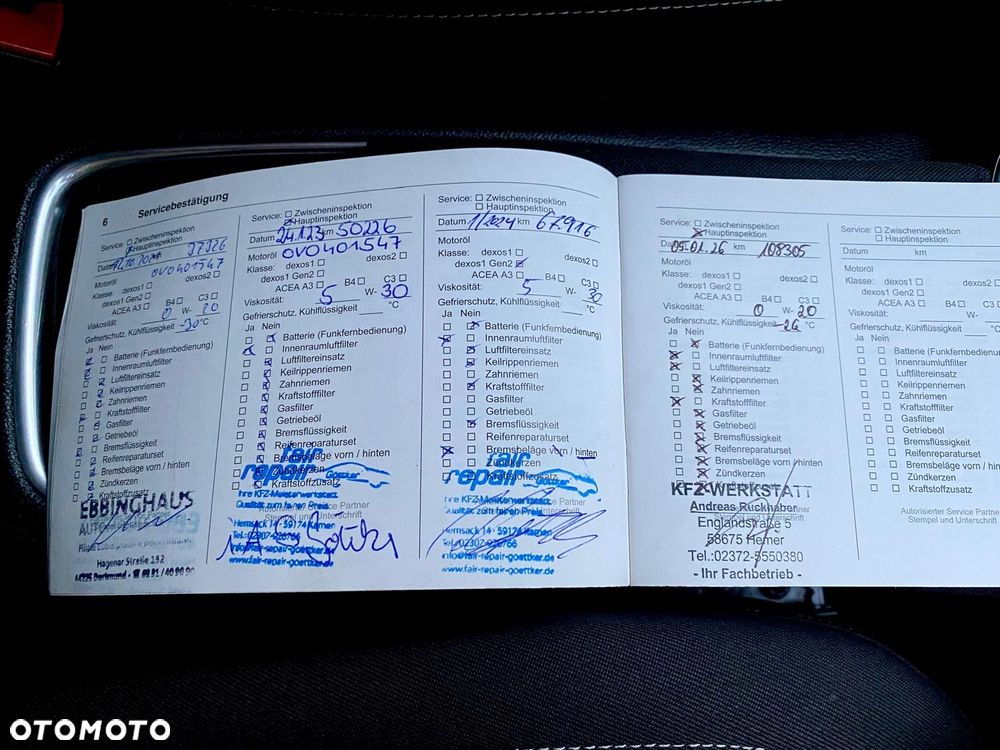 6 Servicebestätigung
Service: ☐ Zwischeninspektion
☒ Hauptinspektion
37326
OVO401547
Motoröl
Klasse: dexos1 ☐ dexos2 ☐
dexos1 Gen2 ☐
ACEA A3 ☐ B4 ☐ C3 ☐
Viskosität: 0 W- 20
Gefrierschutz, Kühlflüssigkeit °C
Ja Nein
Batterie (Funkfernbedienung)
Innenraumluftfilter
Luftfiltereinsatz
Keilrippenriemen
Zahnriemen
Kraftstofffilter
Gasfilter
Getriebeöl
Bremsflüssigkeit
Reifenreparaturset
Bremsbeläge vorn / hinten
Zündkerzen
Kraftstoffzusatz
EBBINGHAUS
Hagener Straße
Service: ☐ Zwischeninspektion
☒ Hauptinspektion
Datum 24.1.23 km 50226
Motoröl OVO401547
Klasse: dexos1 ☐ dexos2 ☐
dexos1 Gen2 ☐
ACEA A3 ☐ B4 ☐ C3 ☐
Viskosität: 5 W- 30
Gefrierschutz, Kühlflüssigkeit °C
Ja Nein
Batterie (Funkfernbedienung)
Innenraumluftfilter
Luftfiltereinsatz
Keilrippenriemen
Zahnriemen
Kraftstofffilter
Gasfilter
Getriebeöl
Bremsflüssigkeit
Reifenreparaturset
Bremsbeläge vorn / hinten
Zündkerzen
Kraftstoffzusatz
fair
repair Goettker
Ihre KFZ-Meisterwerkstatt
Qualität zum fairen Preis
Autorisierter Service Partner
Stempel und Unterschrift
Hemsack 14 · 59174 Kamen
info@fair-repair-goettker.de
www.fair-repair-goettker.de
Service: ☐ Zwischeninspektion
☐ Hauptinspektion
Datum 1/2024 km 67916
Motoröl
Klasse: dexos1 ☐ dexos2 ☐
dexos1 Gen2 ☒
ACEA A3 ☐ B4 ☐ C3 ☐
Viskosität: 5 W- 30
Gefrierschutz, Kühlflüssigkeit °C
Ja Nein
Batterie (Funkfernbedienung)
Innenraumluftfilter
Luftfiltereinsatz
Keilrippenriemen
Zahnriemen
Kraftstofffilter
Gasfilter
Getriebeöl
Bremsflüssigkeit
Reifenreparaturset
Bremsbeläge vorn / hinten
Zündkerzen
Kraftstoffzusatz
fair
repair Goettker
Ihre KFZ-Meisterwerkstatt
Qualität zum fairen Preis
Hemsack 14 · 59174 Kamen
info@fair-repair-goettker.de
www.fair-repair-goettker.de
Service: ☐ Zwischeninspektion
☒ Hauptinspektion
Datum 05.01.26 km 108305
Motoröl
Klasse: dexos1 ☐ dexos2 ☐
dexos1 Gen2 ☐
ACEA A3 ☐ B4 ☐ C3 ☐
Viskosität: 0 W- 20
Gefrierschutz, Kühlflüssigkeit -26 °C
Ja Nein
Batterie (Funkfernbedienung)
Innenraumluftfilter
Luftfiltereinsatz
Keilrippenriemen
Zahnriemen
Kraftstofffilter
Gasfilter
Getriebeöl
Bremsflüssigkeit
Reifenreparaturset
Bremsbeläge vorn / hinten
Zündkerzen
Kraftstoffzusatz
KFZ-WERKSTATT
Andreas Rückhaber
Englandstraße 5
58675 Hemer
Tel.:02372-5550380
- Ihr Fachbetrieb -
Service: ☐ Zwischeninspektion
☐ Hauptinspektion
Datum km
Motoröl
Klasse: dexos1 ☐ dexos2 ☐
dexos1 Gen2 ☐
ACEA A3 ☐ B4 ☐ C3 ☐
Viskosität: W-
Gefrierschutz, Kühlflüssigkeit
Ja Nein
☐ ☐ Batterie (Funkfernbedienung)
☐ ☐ Innenraumluftfilter
☐ ☐ Luftfiltereinsatz
☐ ☐ Keilrippenriemen
☐ ☐ Zahnriemen
☐ ☐ Kraftstofffilter
☐ ☐ Gasfilter
☐ ☐ Getriebeöl
☐ ☐ Bremsflüssigkeit
☐ ☐ Reifenreparaturset
☐ ☐ Bremsbeläge vorn / hinten
☐ ☐ Zündkerzen
☐ ☐ Kraftstoffzusatz
Autorisierter Service Partner
Stempel und Unterschrift
OTOMOTO